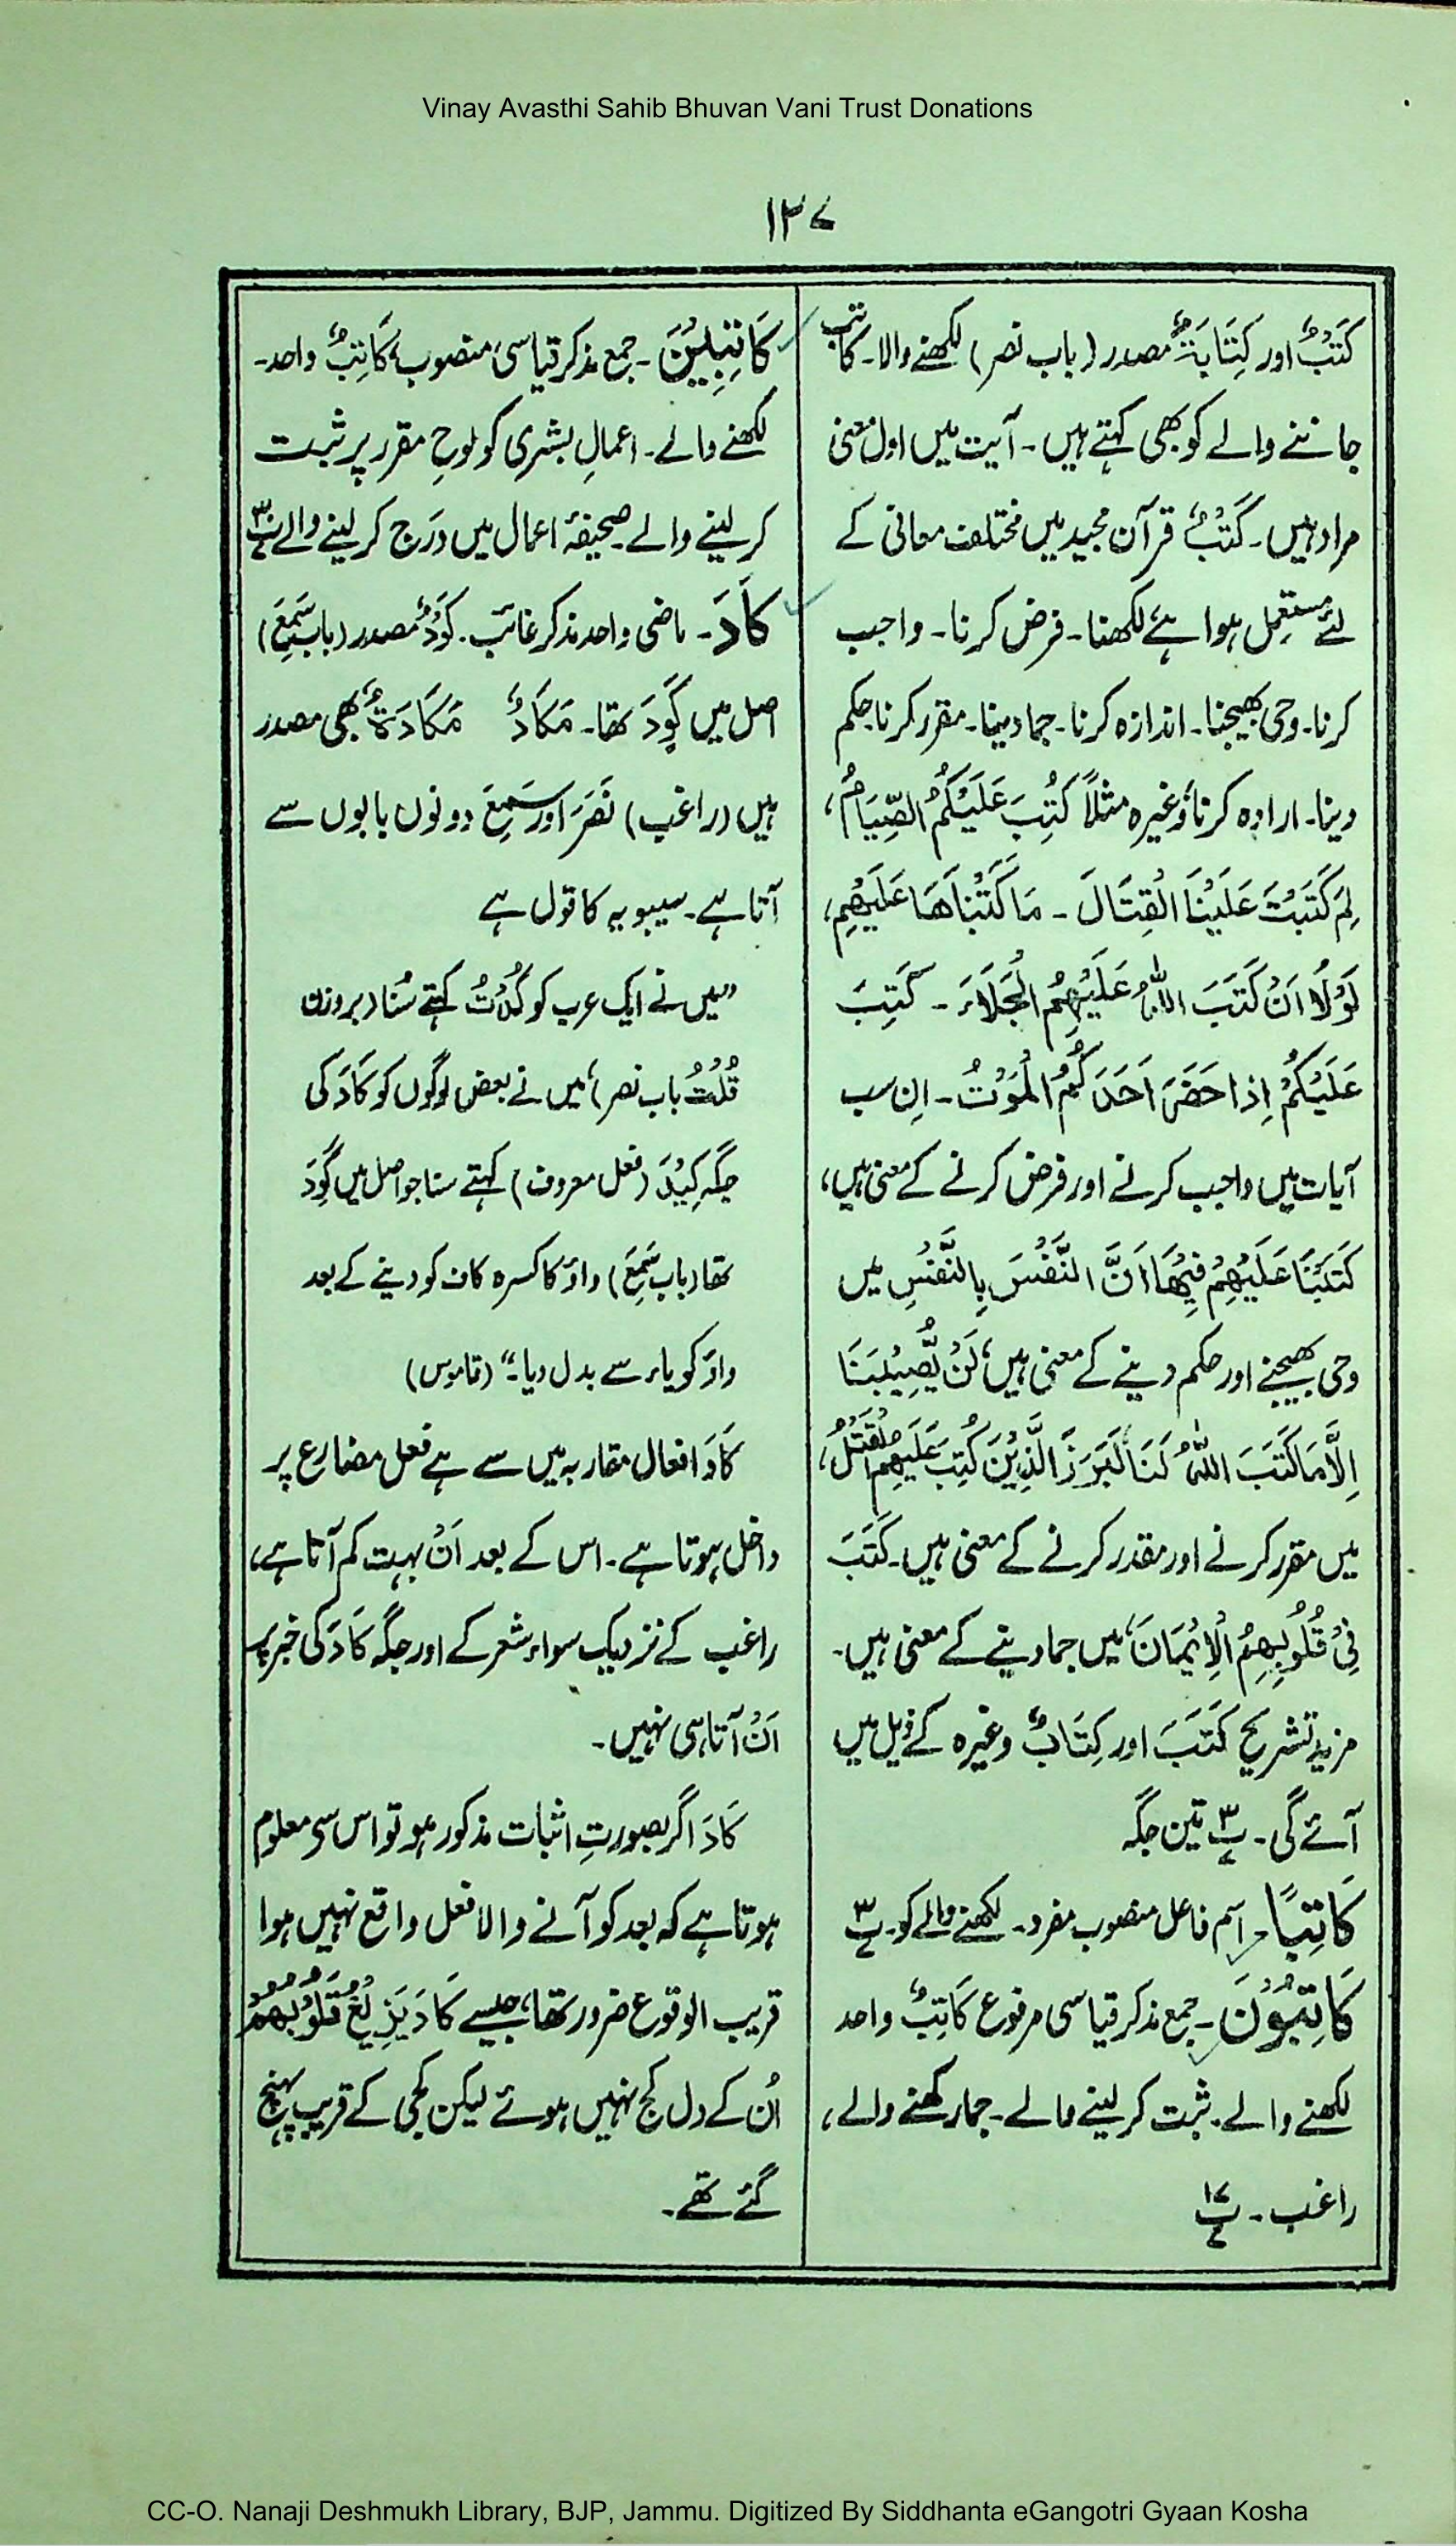 Vinay Avasthi Sahib Bhuvan Vani Trust Donations
۱۲۷
کَتْبٌ اور کِتَابَۃٌ مصدر (باب نصر) لکھنے والا۔ کاتب
جاننے والے کو بھی کہتے ہیں۔ آیت میں اول معنی
مراد ہیں۔ کَتْبٌ قرآن مجید میں مختلف معانی کے
لئے مستعمل ہوا ہے لکھنا۔ فرض کرنا۔ واجب
کرنا۔ وحی بھیجنا۔ اندازہ کرنا۔ جما دینا۔ مقرر کرنا حکم
دینا۔ ارادہ کرنا وغیرہ مثلاً کُتِبَ عَلَیْکُمُ الصِّیَامُ،
لِمَ کَتَبْتَ عَلَیْنَا الْقِتَالَ ۔ مَا کَتَبْنَاهَا عَلَیْهِم،
لَوْلَا اَنْ کَتَبَ اللّٰهُ عَلَیْهِمُ الْجَلَاءَ ۔ کُتِبَ
عَلَیْکُمْ اِذَا حَضَرَ اَحَدَکُمُ الْمَوْتُ ۔ اِن سب
آیات میں واجب کرنے اور فرض کرنے کے معنی ہیں،
کَتَبْنَا عَلَیْهِمْ فِیْهَا اَنَّ النَّفْسَ بِالنَّفْسِ میں
وحی بھیجنے اور حکم دینے کے معنی ہیں، لَنْ یُّصِیْبَنَا
اِلَّا مَا کَتَبَ اللّٰهُ لَنَا لَبَرَزَ الَّذِیْنَ کُتِبَ عَلَیْهِمُ الْقَتْلُ،
میں مقرر کرنے اور مقدر کرنے کے معنی ہیں۔ کَتَبَ
فِیْ قُلُوْبِهِمُ الْاِیْمَانَ، میں جما دینے کے معنی ہیں۔
مزید تشریح کَتَبَ اور کِتَابٌ وغیرہ کے ذیل میں
آئے گی۔ پ۳ تین جگہ
کَاتِبًا۔ اسم فاعل منصوب مفرد۔ لکھنے والے کو۔ پ۳
کَاتِبُوْنَ ۔ جمع مذکر قیاسی مرفوع کَاتِبٌ واحد
لکھنے والے۔ ثبت کر لینے والے۔ جما رکھنے والے،
راغب۔ پ۱۷
کَاتِبِیْنَ ۔ جمع مذکر قیاسی منصوب، کَاتِبٌ واحد۔
لکھنے والے۔ اعمالِ بشری کو لوحِ مقرر پر ثبت
کر لینے والے صحیفۂ اعمال میں درج کر لینے والے
کَادَ۔ ماضی واحد مذکر غائب۔ کَوْدٌ مصدر (باب سَمِعَ)
اصل میں کَوِدَ تھا۔ مَکَادٌ مَکَادَۃٌ بھی مصدر
ہیں (راغب) نَصَرَ اور سَمِعَ دونوں بابوں سے
آتا ہے۔ سیبویہ کا قول ہے
"میں نے ایک عرب کو کُدْتُ کہتے سُنا (بروزن
قُلْتُ باب نصر) میں نے بعض لوگوں کو کَادَ کی
جگہ کِیْدَ (فعل معروف) کہتے سنا جو اصل میں کَوِدَ
تھا (باب سَمِعَ) واؤ کا کسرہ کاف کو دینے کے بعد
واؤ کو یاء سے بدل دیا۔" (قاموس)
کَادَ افعال مقاربہ میں سے ہے فعل مضارع پر
داخل ہوتا ہے۔ اس کے بعد اَنْ بہت کم آتا ہے،
راغب کے نزدیک سواء شعر کے اور جگہ کَادَ کی خبر پر
اَنْ آتا ہی نہیں۔
کَادَ اگر بصورتِ اثبات مذکور ہو تو اس سی معلوم
ہوتا ہے کہ بعد کو آنے والا فعل واقع نہیں ہوا
قریب الوقوع ضرور تھا، جیسے کَادَ یَزِیْغُ قُلُوْبُهُمْ
اُن کے دل کج نہیں ہوئے لیکن کجی کے قریب پہنچ
گئے تھے۔
CC-O. Nanaji Deshmukh Library, BJP, Jammu. Digitized By Siddhanta eGangotri Gyaan Kosha